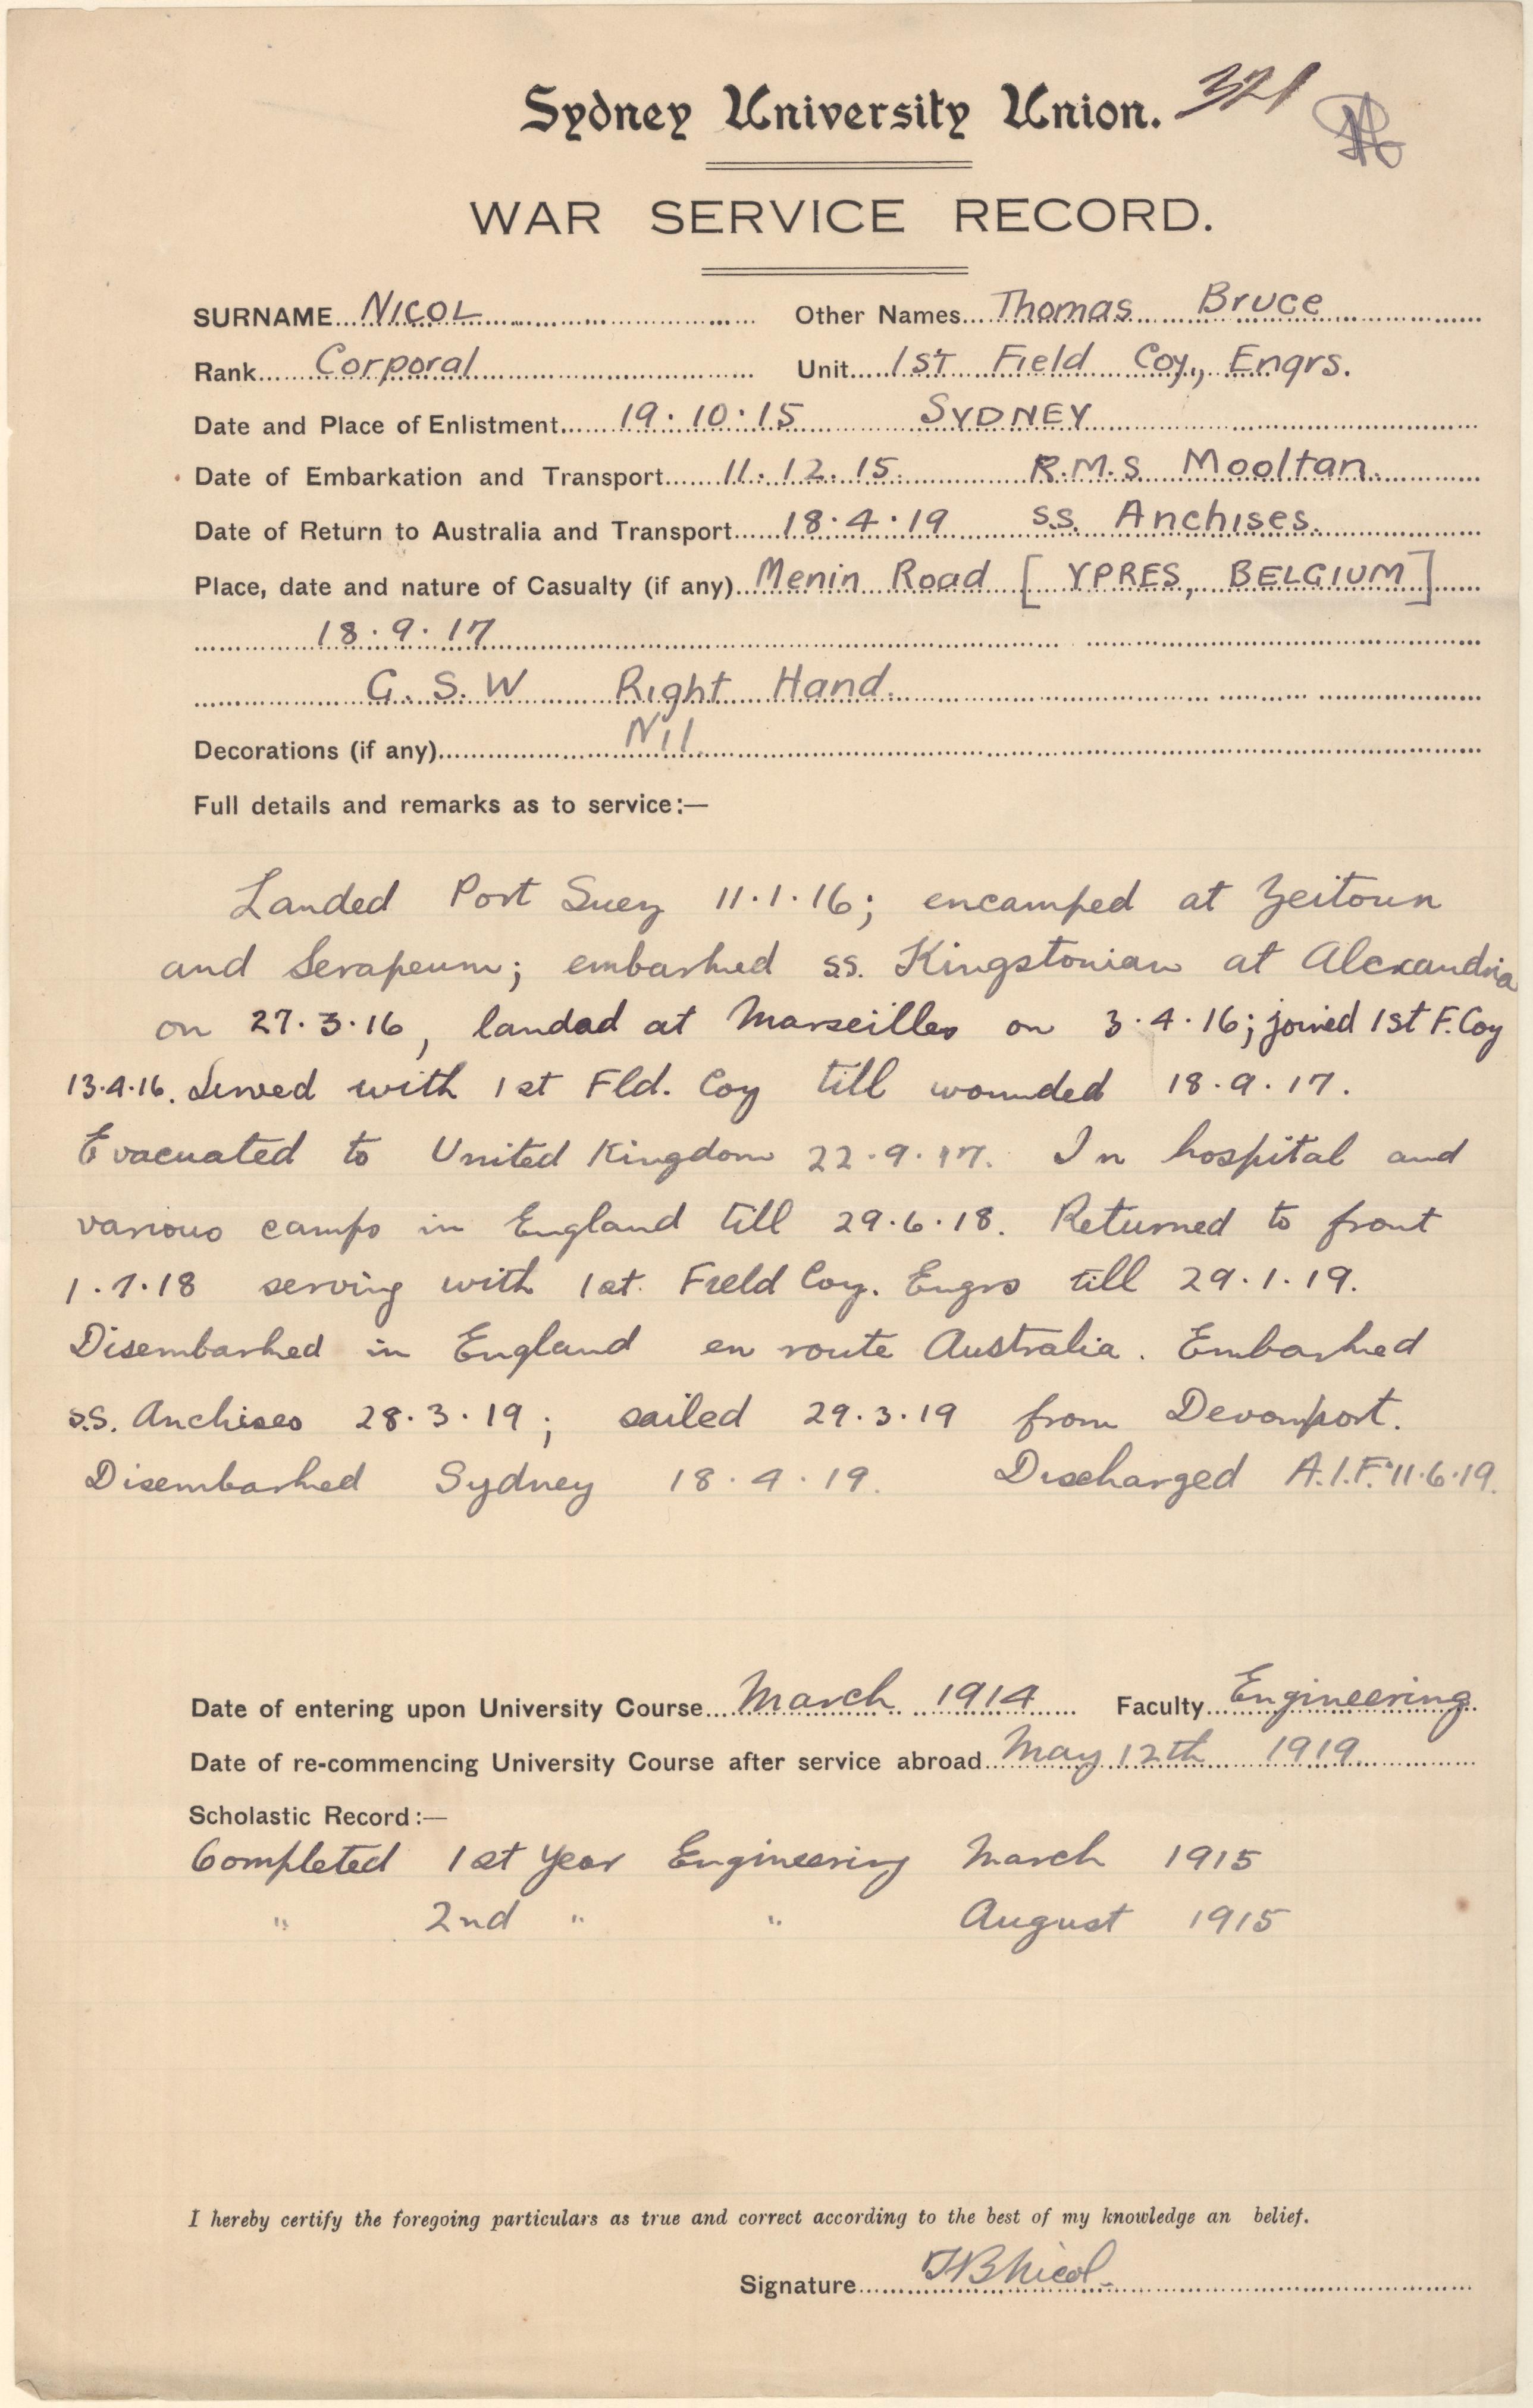 Sydney University Union. 321
WAR SERVICE RECORD.
SURNAME NICOL Other Names Thomas Bruce
Rank Corporal Unit 1st Field Coy., Engrs.
Date and Place of Enlistment 19.10.15 SYDNEY
Date of Embarkation and Transport 11.12.15. R.M.S Mooltan.
Date of Return to Australia and Transport 18.4.19 s.s. Anchises.
Place, date and nature of Casualty (if any) Menin Road [YPRES, BELGIUM]
18.9.17
G.S.W Right Hand.
Decorations (if any) Nil
Full details and remarks as to service:—
Landed Port Suez 11.1.16; encamped at Zeitoun
and Serapeum; embarked ss. Kingstonian at Alexandria
on 27.3.16, landad at Marseilles on 3.4.16; joined 1st F. Coy
13.4.16. Served with 1st Fld. Coy till wounded 18.9.17.
Evacuated to United Kingdom 22.9.17. In hospital and
various camps in England till 29.6.18. Returned to front
1.7.18 serving with 1st. Field Coy. Engrs till 29.1.19.
Disembarked in England en route Australia. Embarked
s.s. Anchises 28.3.19; sailed 29.3.19 from Devonport.
Disembarked Sydney 18.4.19. Discharged A.I.F. 11.6.19.
Date of entering upon University Course March 1914 Faculty Engineering
Date of re-commencing University Course after service abroad May 12th 1919
Scholastic Record:—
Completed 1st Year Engineering March 1915
" 2nd " " August 1915
I hereby certify the foregoing particulars as true and correct according to the best of my knowledge an belief.
Signature TBNicol